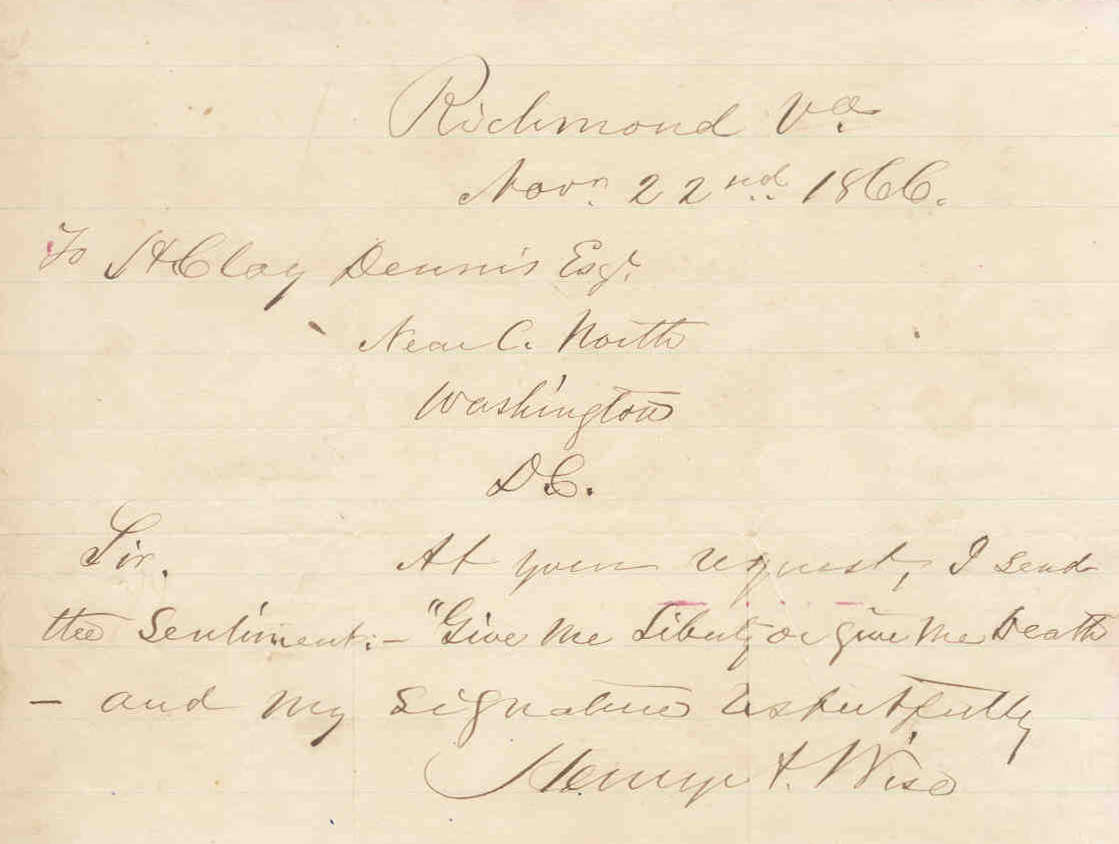 Richmond Va.
Novr. 22nd. 1866.
To H Clay Dennis Esqr.
Near C. North
Washington
D.C.
Sir. At your request, I send
the Sentiment:- "Give me Liberty or give me Death
- and my signature respectfully
Henry A. Wise